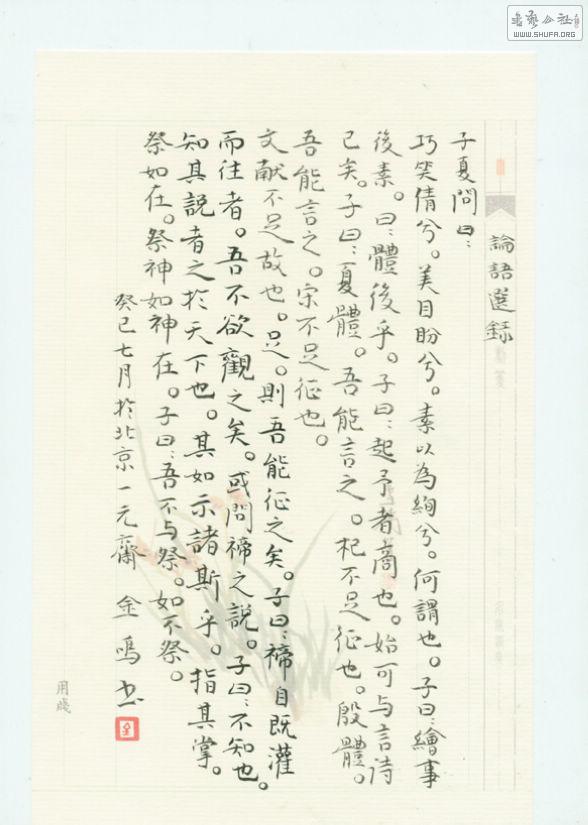 書藝公社
WWW.SHUFA.ORG
論語選録
子夏問曰：
巧笑倩兮。美目盼兮。素以為絢兮。何謂也。子曰：繪事
後素。曰：體後乎。子曰：起予者商也。始可与言詩
已矣。子曰：夏體。吾能言之。杞不足征也。殷體。
吾能言之。宋不足征也。
文献不足故也。足。則吾能征之矣。子曰：禘自既灌
而往者。吾不欲觀之矣。或問禘之說。子曰：不知也。
知其説者之於天下也。其如示諸斯乎。指其掌。
祭如在。祭神如神在。子曰：吾不与祭。如不祭。
癸巳七月於北京一元齋 金鳴书
用箋